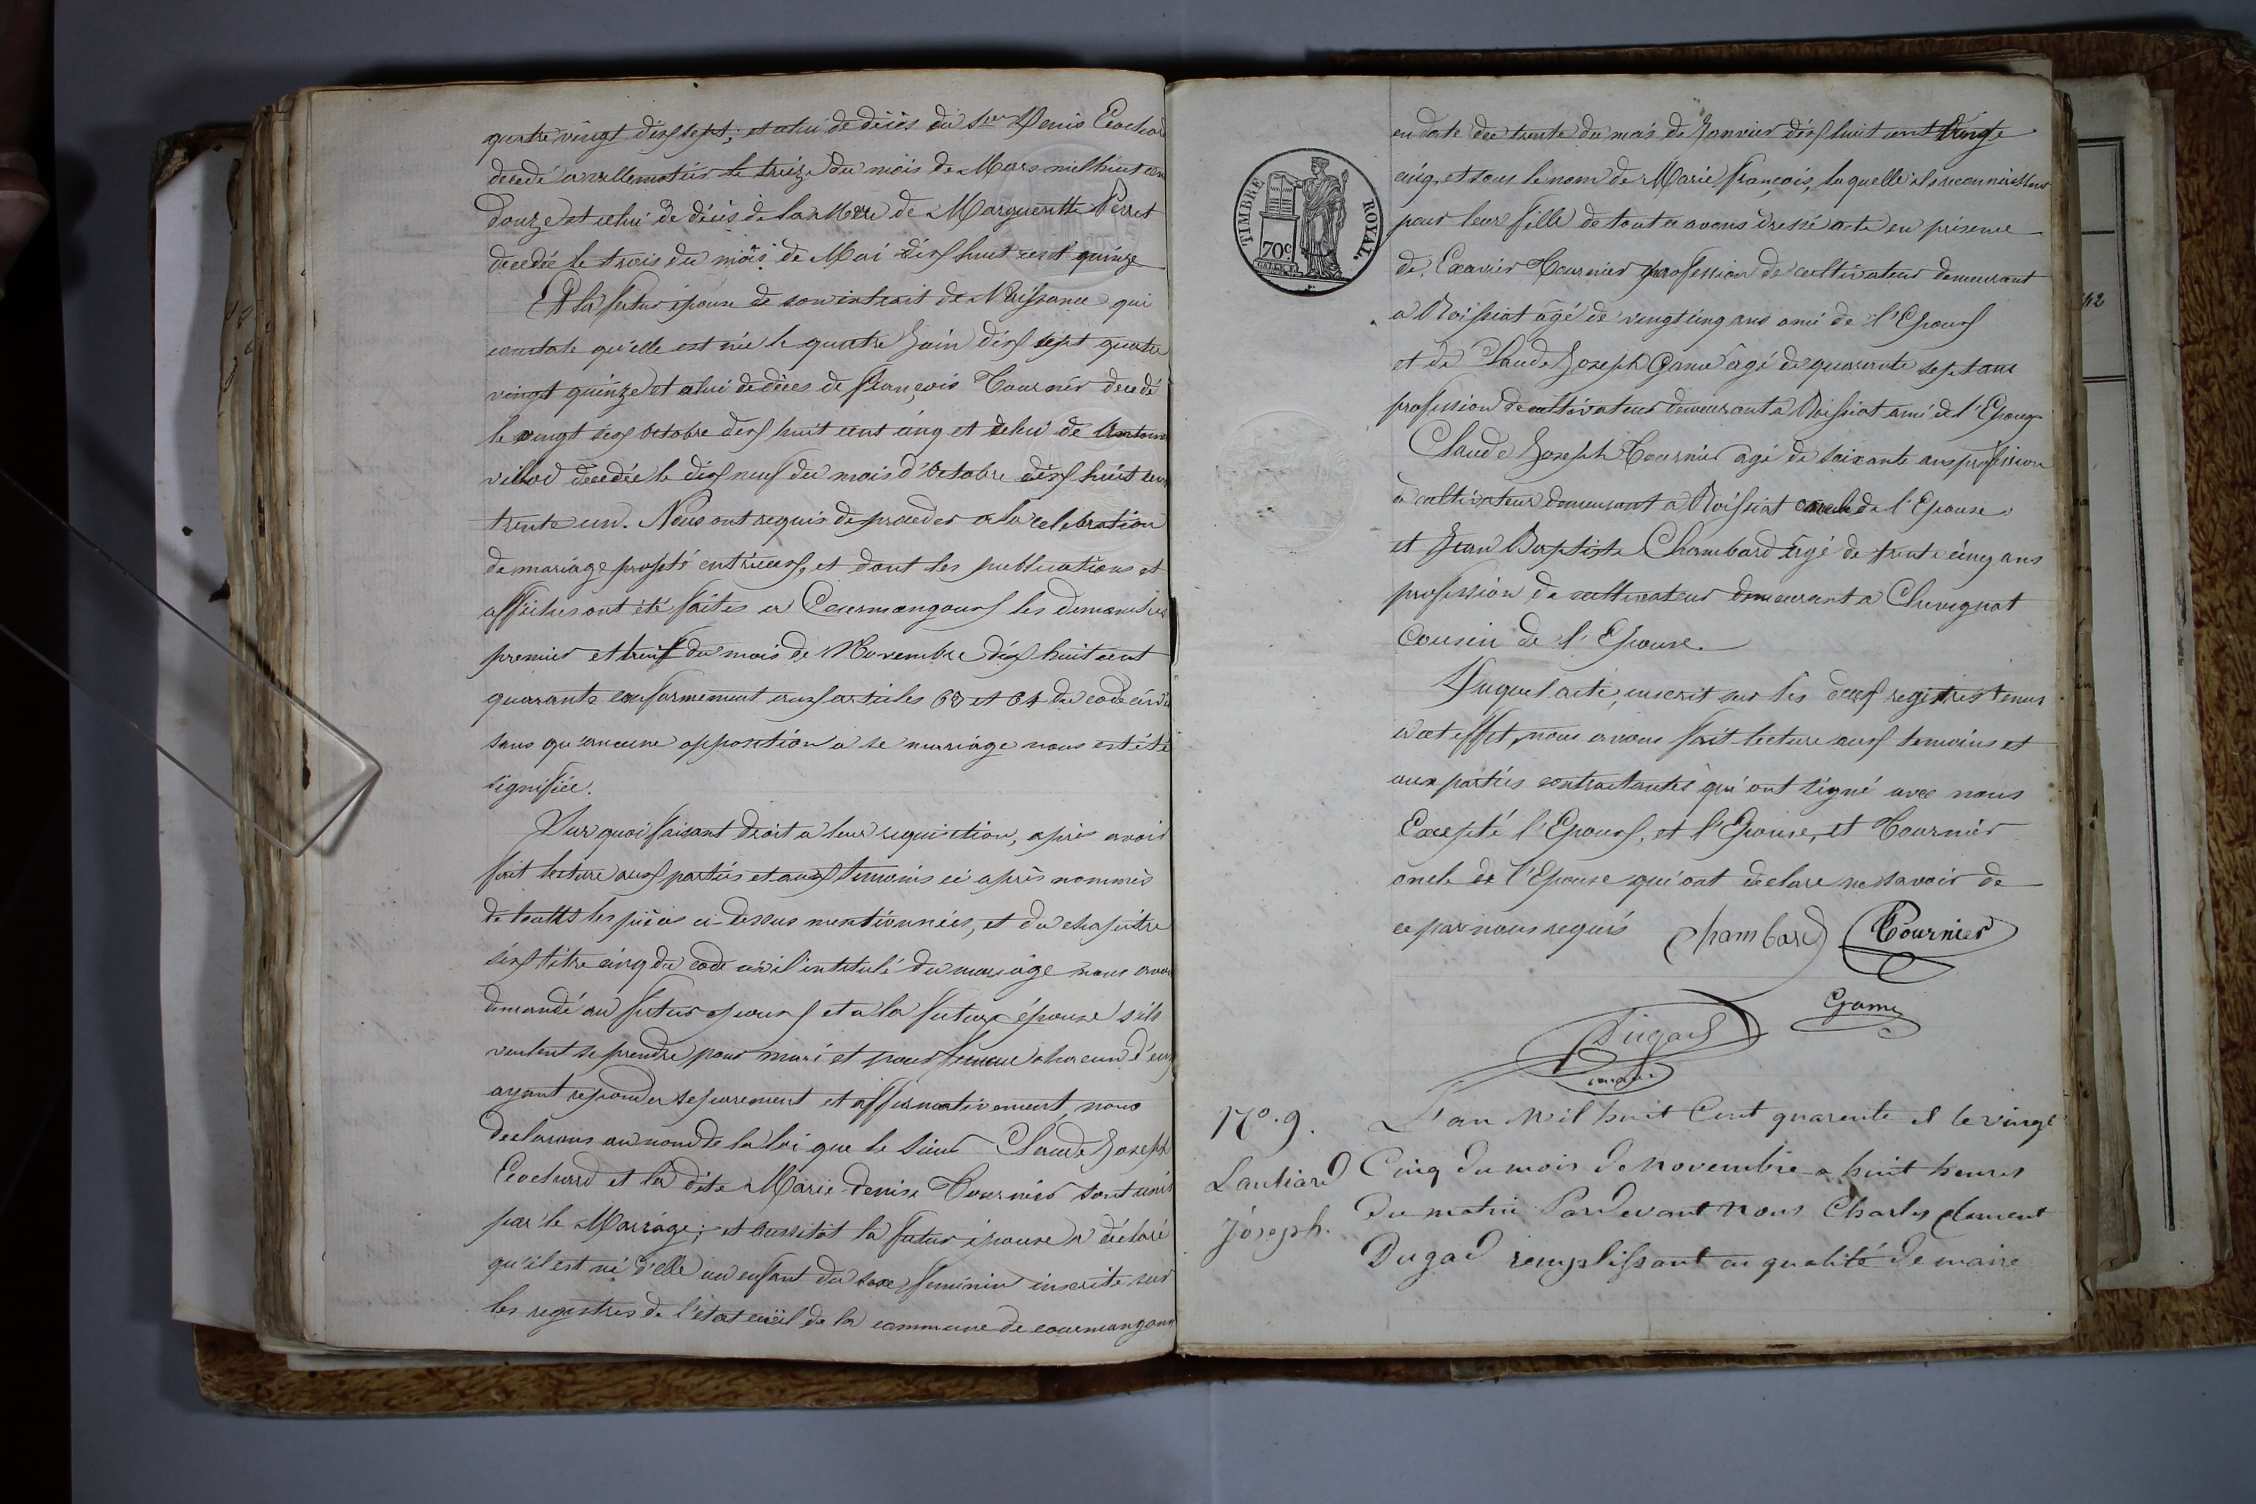 quatre vingt dix sept; et celui de décès du Sieur Denis Ecochard
decedé a villemotier le treize du mois de Mars mil huit cent
douze et celui de décès de la Mère de Margueritte Perret
decedée le trois du mois de Mai dix huit cent quinze
Et la futur épouse de son extrait de Naissance qui
constate qu'elle est née le quatre Juin dix sept quatre
vingt quinze et celui de décès de françois Tournier decedé
le vingt six Octobre dix huit cent cinq et celui de
decedée le dix neuf du mois d'Octobre dix huit cent
trente un. Nous ont requis de proceder a la celebration
de mariage projeté entr'eux, et dont les publications et
affiches ont été faites a Courmangoux les dimanches
premier et du mois de Novembre dix huit cent
quarante conformement aux articles 63 et 64 du code civil
sans qu'aucune opposition a se mariage nous est été
signifiée.
Sur quoi faisant droit a leur requisition, après avoir
fait lecture aux parties et aux temoins ci après nommés
de toutes les pièces ci dessus mentionnées, et du chapitre
six titre cinq du code civil intitulé du mariage nous avons
demandé au futur epoux et a la future épouse s'ils
veulent se prendre pour mari et pour femme chacun d'eux
ayant repondu separement et affirmativement, nous
declarons au nom de la loi que le Sieur Claude Joseph
Ecochard et la dite Marie denise Tournier sont unis
par le Mariage; et aussitôt la futur épouse a déclaré
qu'il est né d'elle un enfant du sexe feminin inscrite sur
les registres de l'état civil de la commune de courmangoux
TIMBRE ROYAL.
70c
en date du trente du mois de Janvier dix huit cent vingt
cinq, et sous le nom de Marie françois, laquelle ils reconnaissent
pour leur fille de tout ce avons dressé acte en présence
de Exavier Tournier profession de cultivateur demeurant
a Roissiat âgé de vingt cinq ans ami de l'Epoux
et de Claude Joseph Game agé de quarante sept ans
profession de cultivateur demeurant a Roissiat ami de l'Epoux
Claude Joseph Tournier agé de soixante ans profession
de cultivateur demeurant a Roissiat oncle de l'Epouse
et Jean Baptiste Chambard âgé de trente cinq ans
profession de cultivateur demeurant a Chevignat
Cousin de l'Epouse.
Duquel acte, inscrit sur les deux registres tenus
a cet effet, nous avons fait lecture aux temoins et
aux parties contractantes qui ont signé avec nous
Excepté l'Epoux, et l'Epouse, et Tournier
oncle de l'Epouse qui ont declare ne savoir de
ce par nous requis Chambard Tournier
Game
Dugad
maire
No. 9. L'an Mil huit Cent quarente et le vingt
Lautiard Cinq du mois de Novembre a huit heures
du matin Pardevant Nous Charles Clement
Joseph. Dugad remplissant en qualité de maire